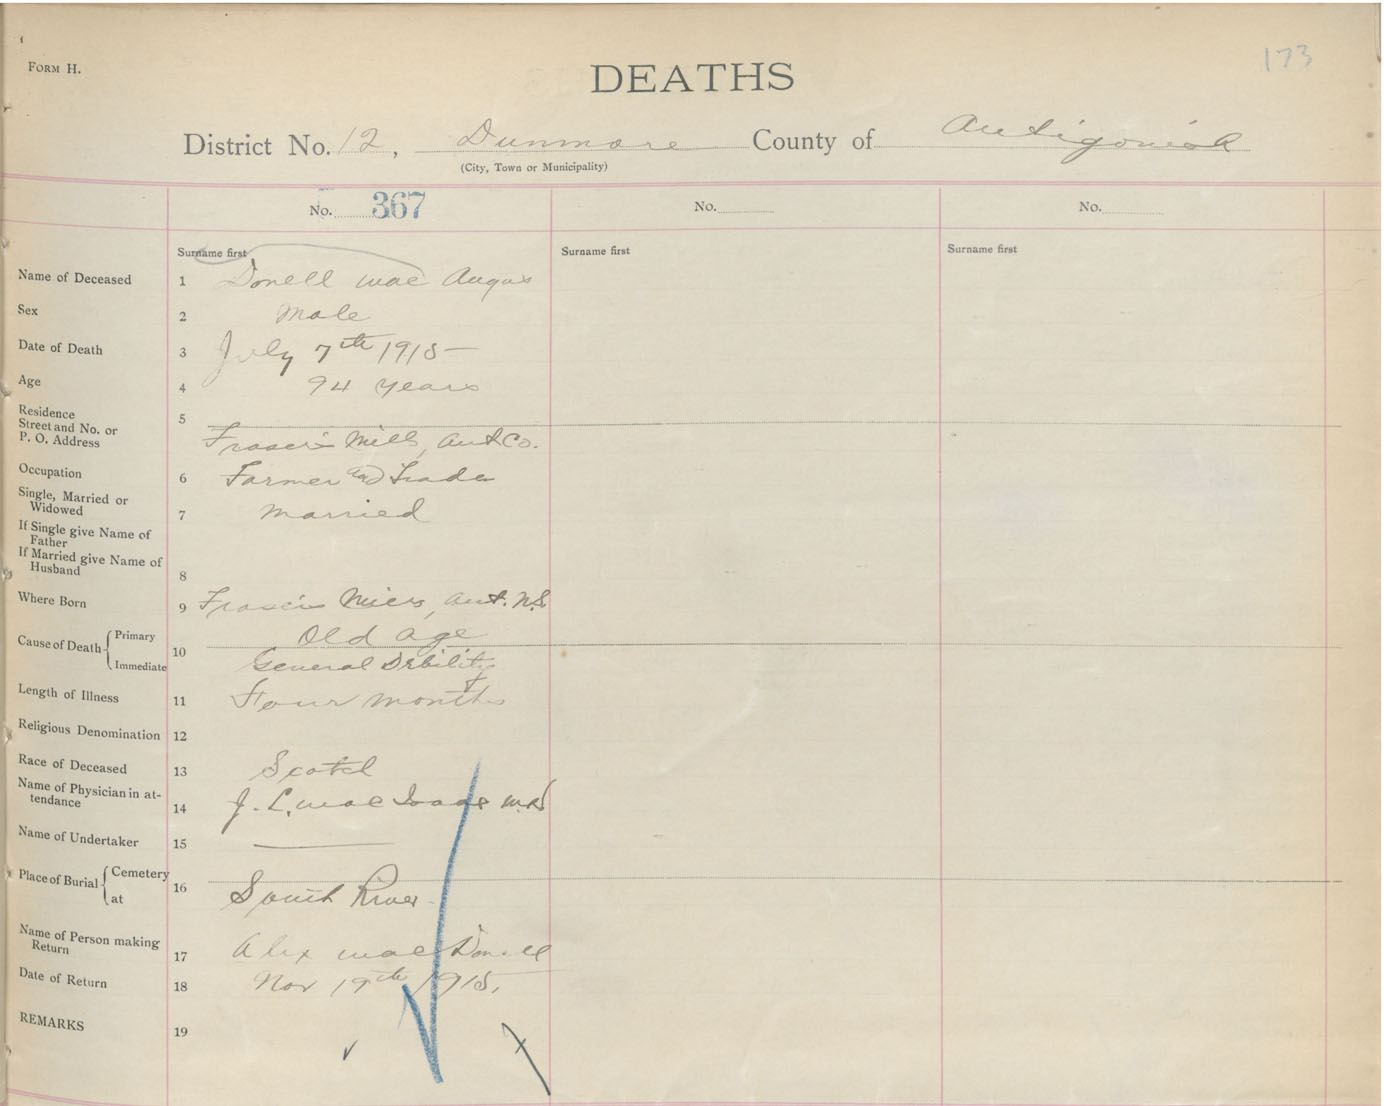 173
FORM H.
DEATHS
District No. 12, Dunmore County of Antigonish
(City, Town or Municipality)
No. 367 No. No.
Surname first Surname first Surname first
Name of Deceased 1 Donell Mac Angus
Sex 2 Male
Date of Death 3 July 7th 1915
Age 4 94 years
Residence
Street and No. or
P. O. Address 5 Fraser's Mills, Ant Co.
Occupation 6 Farmer and Trader
Single, Married or
Widowed 7 Married
If Single give Name of
Father
If Married give Name of
Husband 8
Where Born 9 Fraser's Mills, Ant. N.S.
Cause of Death Primary 10 Old Age
Immediate General Debility
Length of Illness 11 Four months
Religious Denomination 12
Race of Deceased 13 Scotch
Name of Physician in at-
tendance 14 J. L. Mac Isaac M.D.
Name of Undertaker 15
Place of Burial Cemetery 16
at South River
Name of Person making
Return 17 Alex Mac Donell
Date of Return 18 Nov 19th 1915.
REMARKS 19